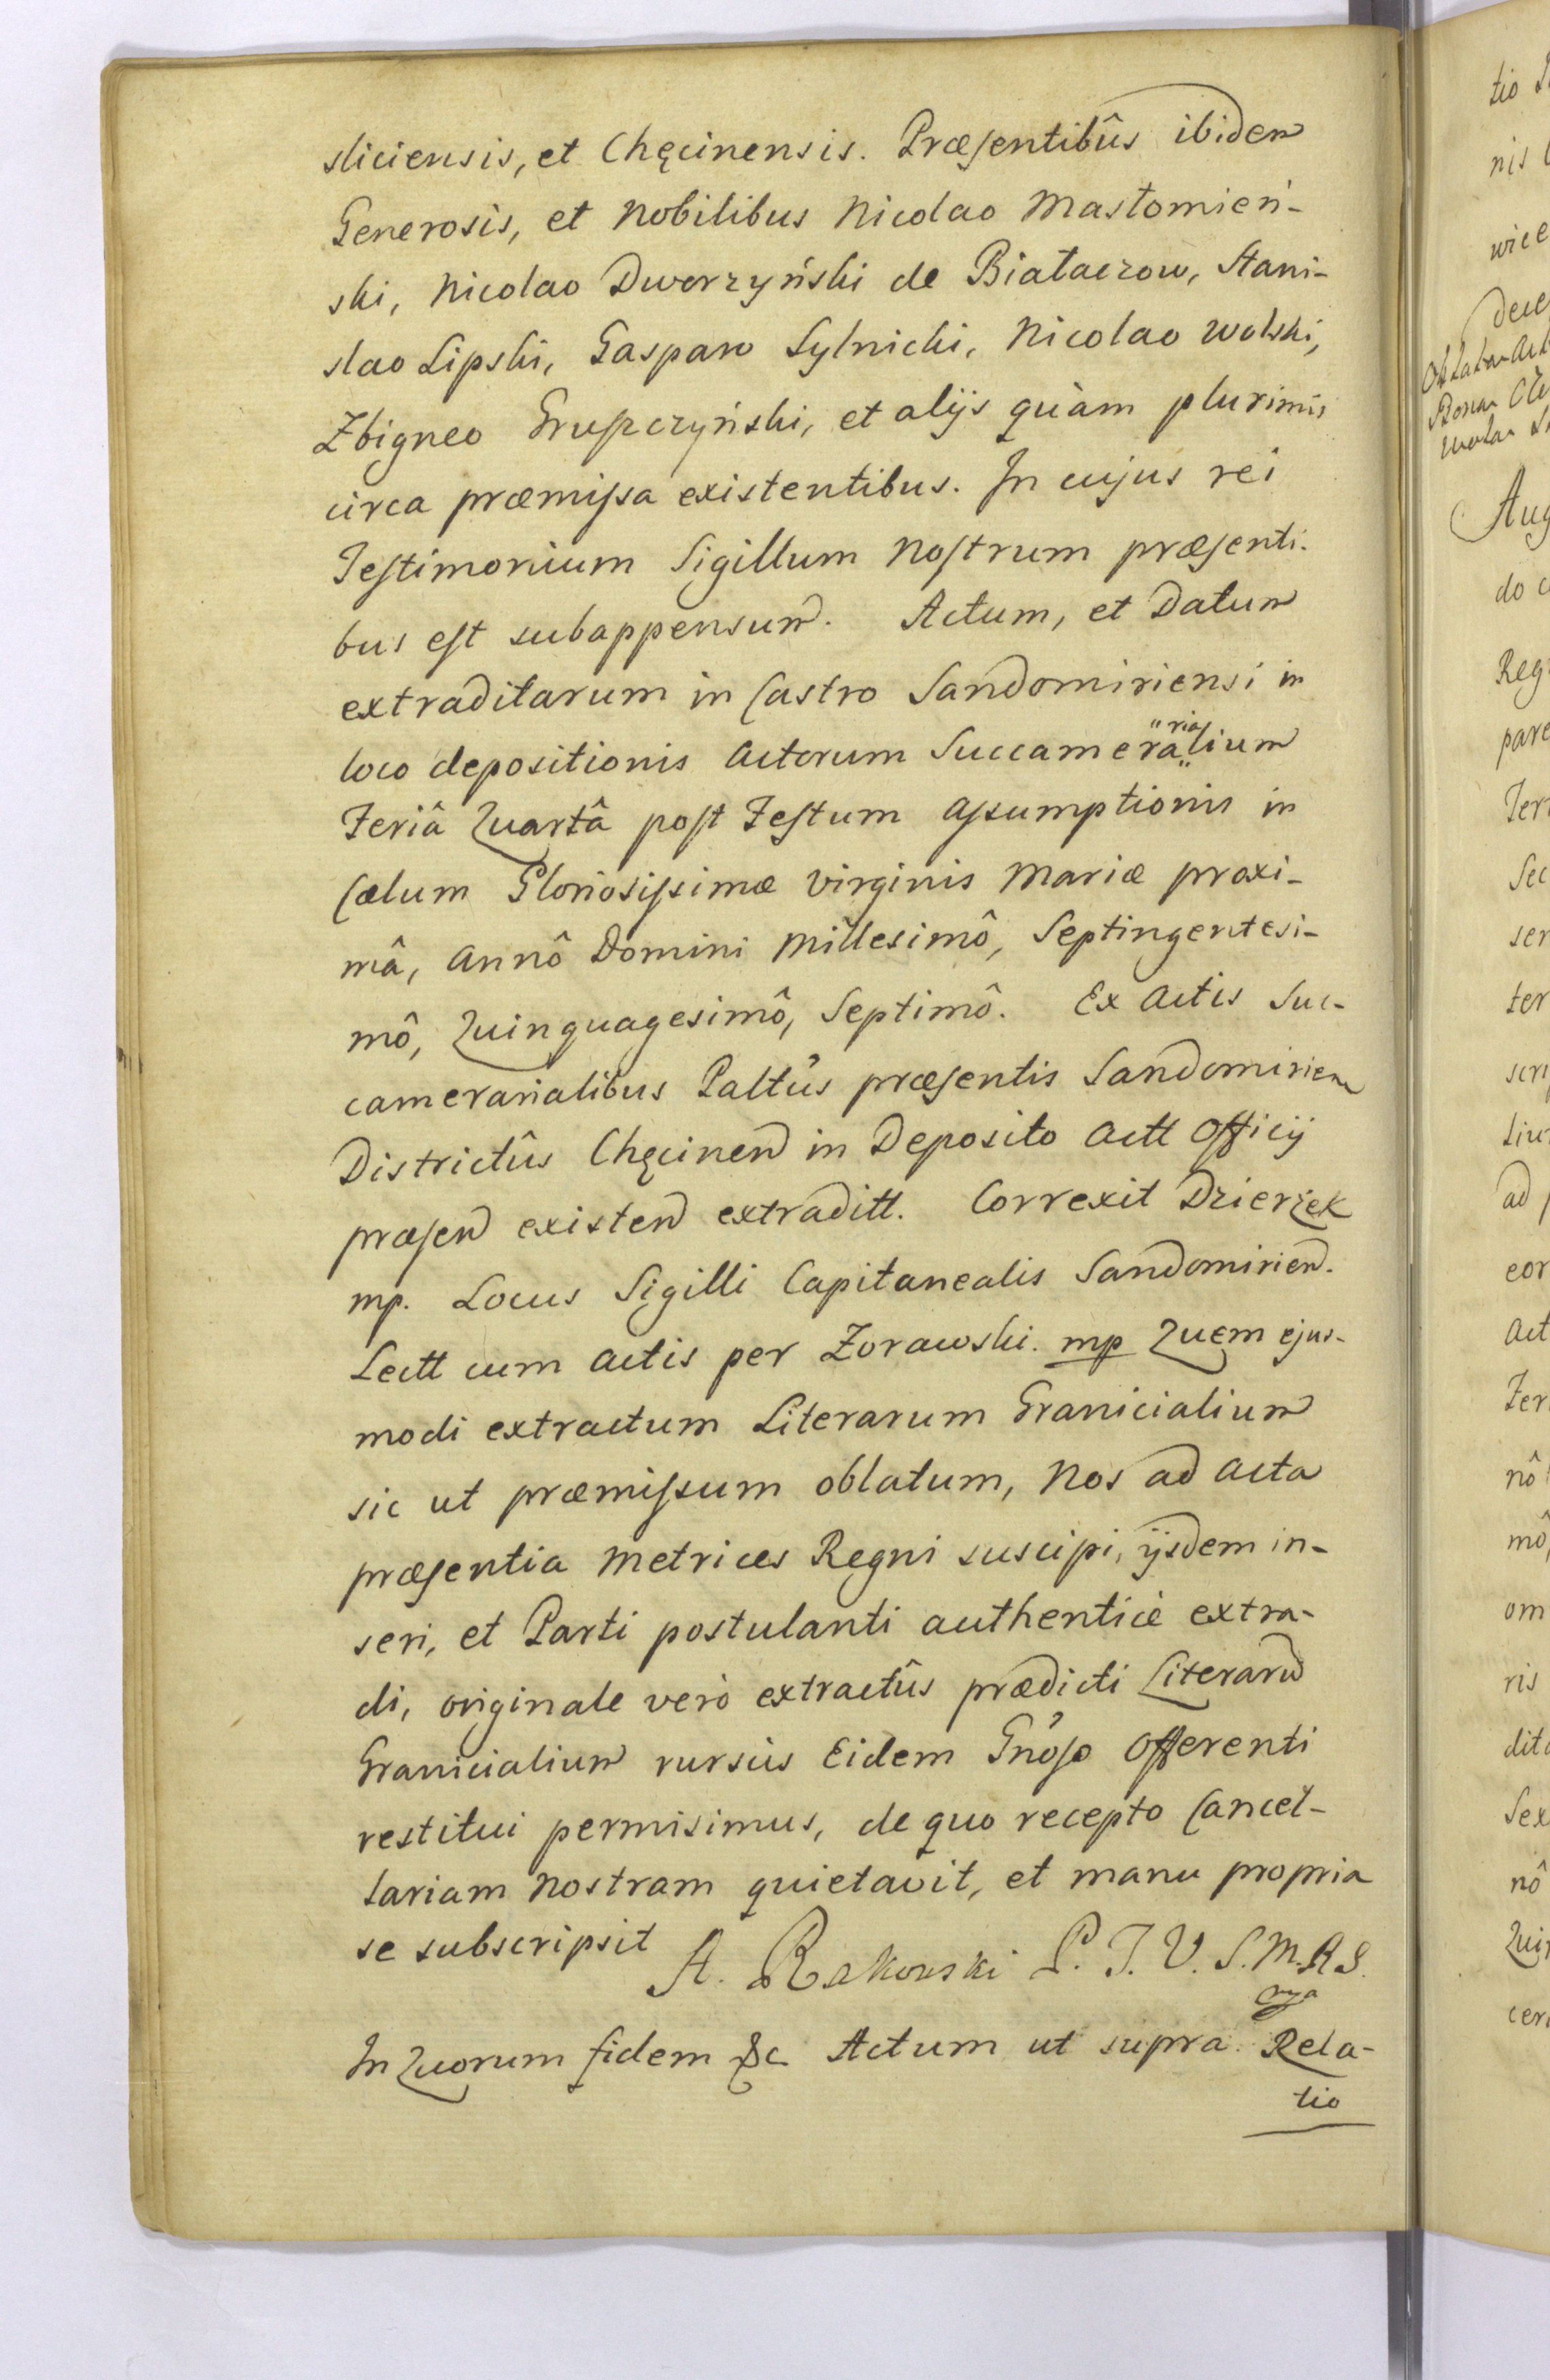 sliciensis, et Chęcinensis. Præsentibûs ibidem
Generosis, et Nobilibus Nicolao Masłomień-
ski, Nicolao Dworzyński de Białaczow, Stani-
slao Lipski, Gasparo Sylnicki, Nicolao Wolski,
Zbigneo Gruszczyński, et alijs quàm plurimis
circa præmissa existentibus. In cujus rei
Testimonium Sigillum Nostrum præsenti-
bus est subappensum. Actum, et Datum
extraditarum in Castro Sandomiriensi in
loco depositionis Actorum Succameralium
"ria
Feriâ Quartâ post Festum Assumptionis in
Cælum Gloriosissimæ Virginis Mariæ proxi-
mâ, Annô Domini Millesimô, Septingentesi-
mô, Quinquagesimô, Septimô. Ex Actis Suc-
camerarialibus Paltûs præsentis Sandomirien
Districtûs Chęcinen in Deposito Actt Officij
præsen existen extraditt. Correxit Dzierżek
mp. Locus Sigilli Capitanealis Sandomirien.
Lectt cum actis per Zorawski. mp Quem ejus-
modi extractum Literarum Granicialium
sic ut præmissum oblatum, Nos ad Acta
præsentia Metrices Regni suscipi, ijsdem in-
seri, et Parti postulanti authenticè extra-
di, originale verò extractûs prædicti Literaru
Granicialium rursùs Eidem Gnôso Offerenti
restitui permisimus, de quo recepto Cancel-
lariam Nostram quietavit, et manu propria
se subscripsit A. Rakowski P. J. V. S. M. R S.
mpa
In Quorum fidem &c Actum ut supra. Rela-
tio